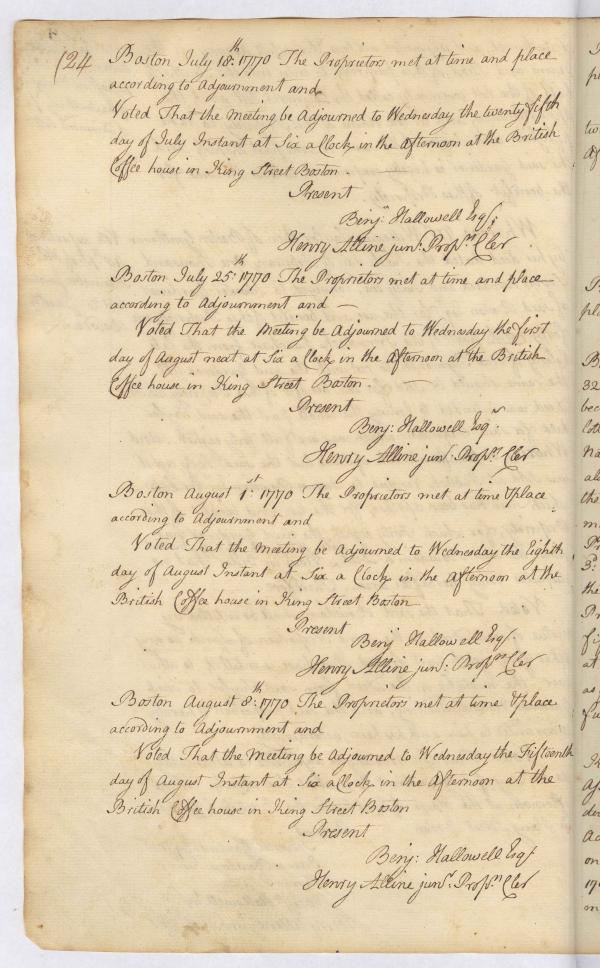 124
Boston July 18th: 1770 The Proprietors met at time and place
according to Adjournment and
Voted That the Meeting be Adjourned to Wednesday the twenty fifth
day of July Instant at Six a Clock in the Afternoon at the British
Coffee house in King Street Boston. —
Present
Benjn Hallowell Esqr:
Henry Alline junr: Proprs Cler
Boston July 25th: 1770 The Proprietors met at time and place
according to Adjournment and —
Voted That the Meeting be Adjourned to Wednesday the first
day of August next at Six a Clock in the Afternoon at the British
Coffee house in King Street Boston. —
Present
Benj: Hallowell Esqr
Henry Alline junr: Proprs Cler
Boston August 1st: 1770 The Proprietors met at time & place
according to Adjournment and
Voted That the Meeting be Adjourned to Wednesday the Eighth
day of August Instant at Six a Clock in the Afternoon at the
British Coffee house in King Street Boston
Present
Benj Hallowell Esqr.
Henry Alline junr: Proprs Cler
Boston August 8th: 1770 The Proprietors met at time & place
according to Adjournment and
Voted That the Meeting be Adjourned to Wednesday the Fifteenth
day of August Instant at Six a Clock in the Afternoon at the
British Coffee house in King Street Boston
Present
Benj: Hallowell Esqr
Henry Alline junr: Proprs Cler